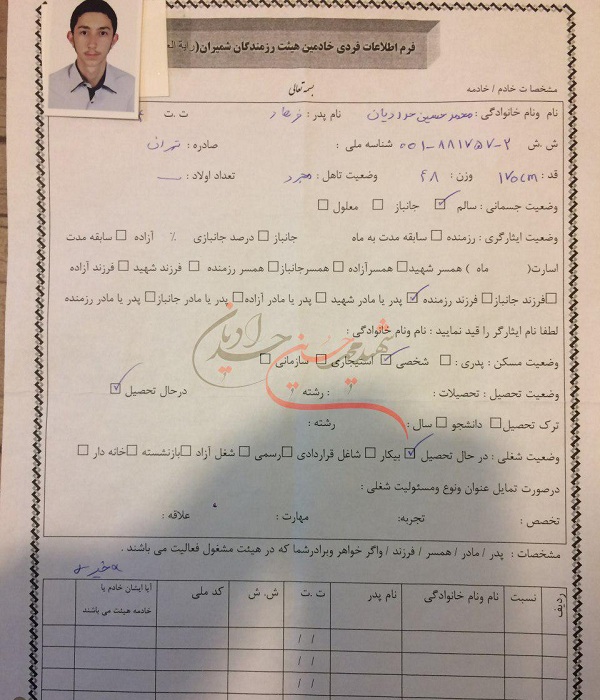 فرم اطلاعات فردی خادمین هیئت رزمندگان شمیران(رایة الع
بسمه تعالی
مشخصات خادم / خادمه
نام ونام خانوادگی : محمد حسین حدادیان نام پدر : فرهاد ت.ت
ش .ش ۰۰۱-۸۸۱۷۵۷-۲ شناسه ملی : صادره : تهران
قد : ۱۷۵cm وزن : ۶۸ وضعیت تاهل : مجرد تعداد اولاد :
وضعیت جسمانی : سالم جانباز معلول
وضعیت ایثارگری : رزمنده سابقه مدت به ماه جانباز درصد جانبازی % آزاده سابقه مدت
اسارت( ماه ) همسر شهید همسرآزاده همسرجانباز همسر رزمنده فرزند شهید فرزند آزاده
فرزند جانباز فرزند رزمنده پدر یا مادر شهید پدر یا مادر آزاده پدر یا مادر جانباز پدر یا مادر رزمنده
لطفا نام ایثارگر را قید نمایید : نام ونام خانوادگی :
شهید محمد حسین حدادیان
وضعیت مسکن : پدری : شخصی استیجاری سازمانی
وضعیت تحصیل : تحصیلات : : رشته درحال تحصیل
ترک تحصیل دانشجو سال : رشته :
وضعیت شغلی : در حال تحصیل بیکار شاغل قراردادی رسمی شغل آزاد بازنشسته خانه دار
درصورت تمایل عنوان ونوع ومسئولیت شغلی :
تخصص : تجربه: مهارت : علاقه :
مشخصات : پدر / مادر / همسر / فرزند / واگر خواهر وبرادرشما که در هیئت مشغول فعالیت می باشند .
ردیف نسبت نام ونام خانوادگی نام پدر ت.ت ش. ش کد ملی آیا ایشان خادم یا
خادمه هیئت می باشند
/ /
/ /
/ /